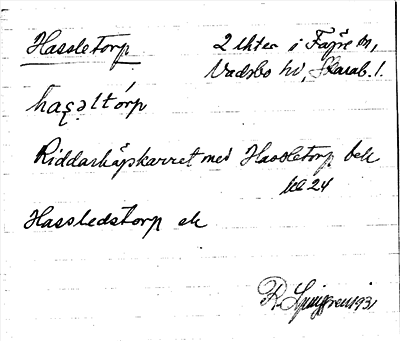 Hassletorp 2 ukter i Fägre sn,
Vadsbo hd, Skarab. l.
hasəltòrp
Riddarkåpskärret med Hassletorp bek
bl 24
Hassledstorp ek
R. Ljunggren 1931